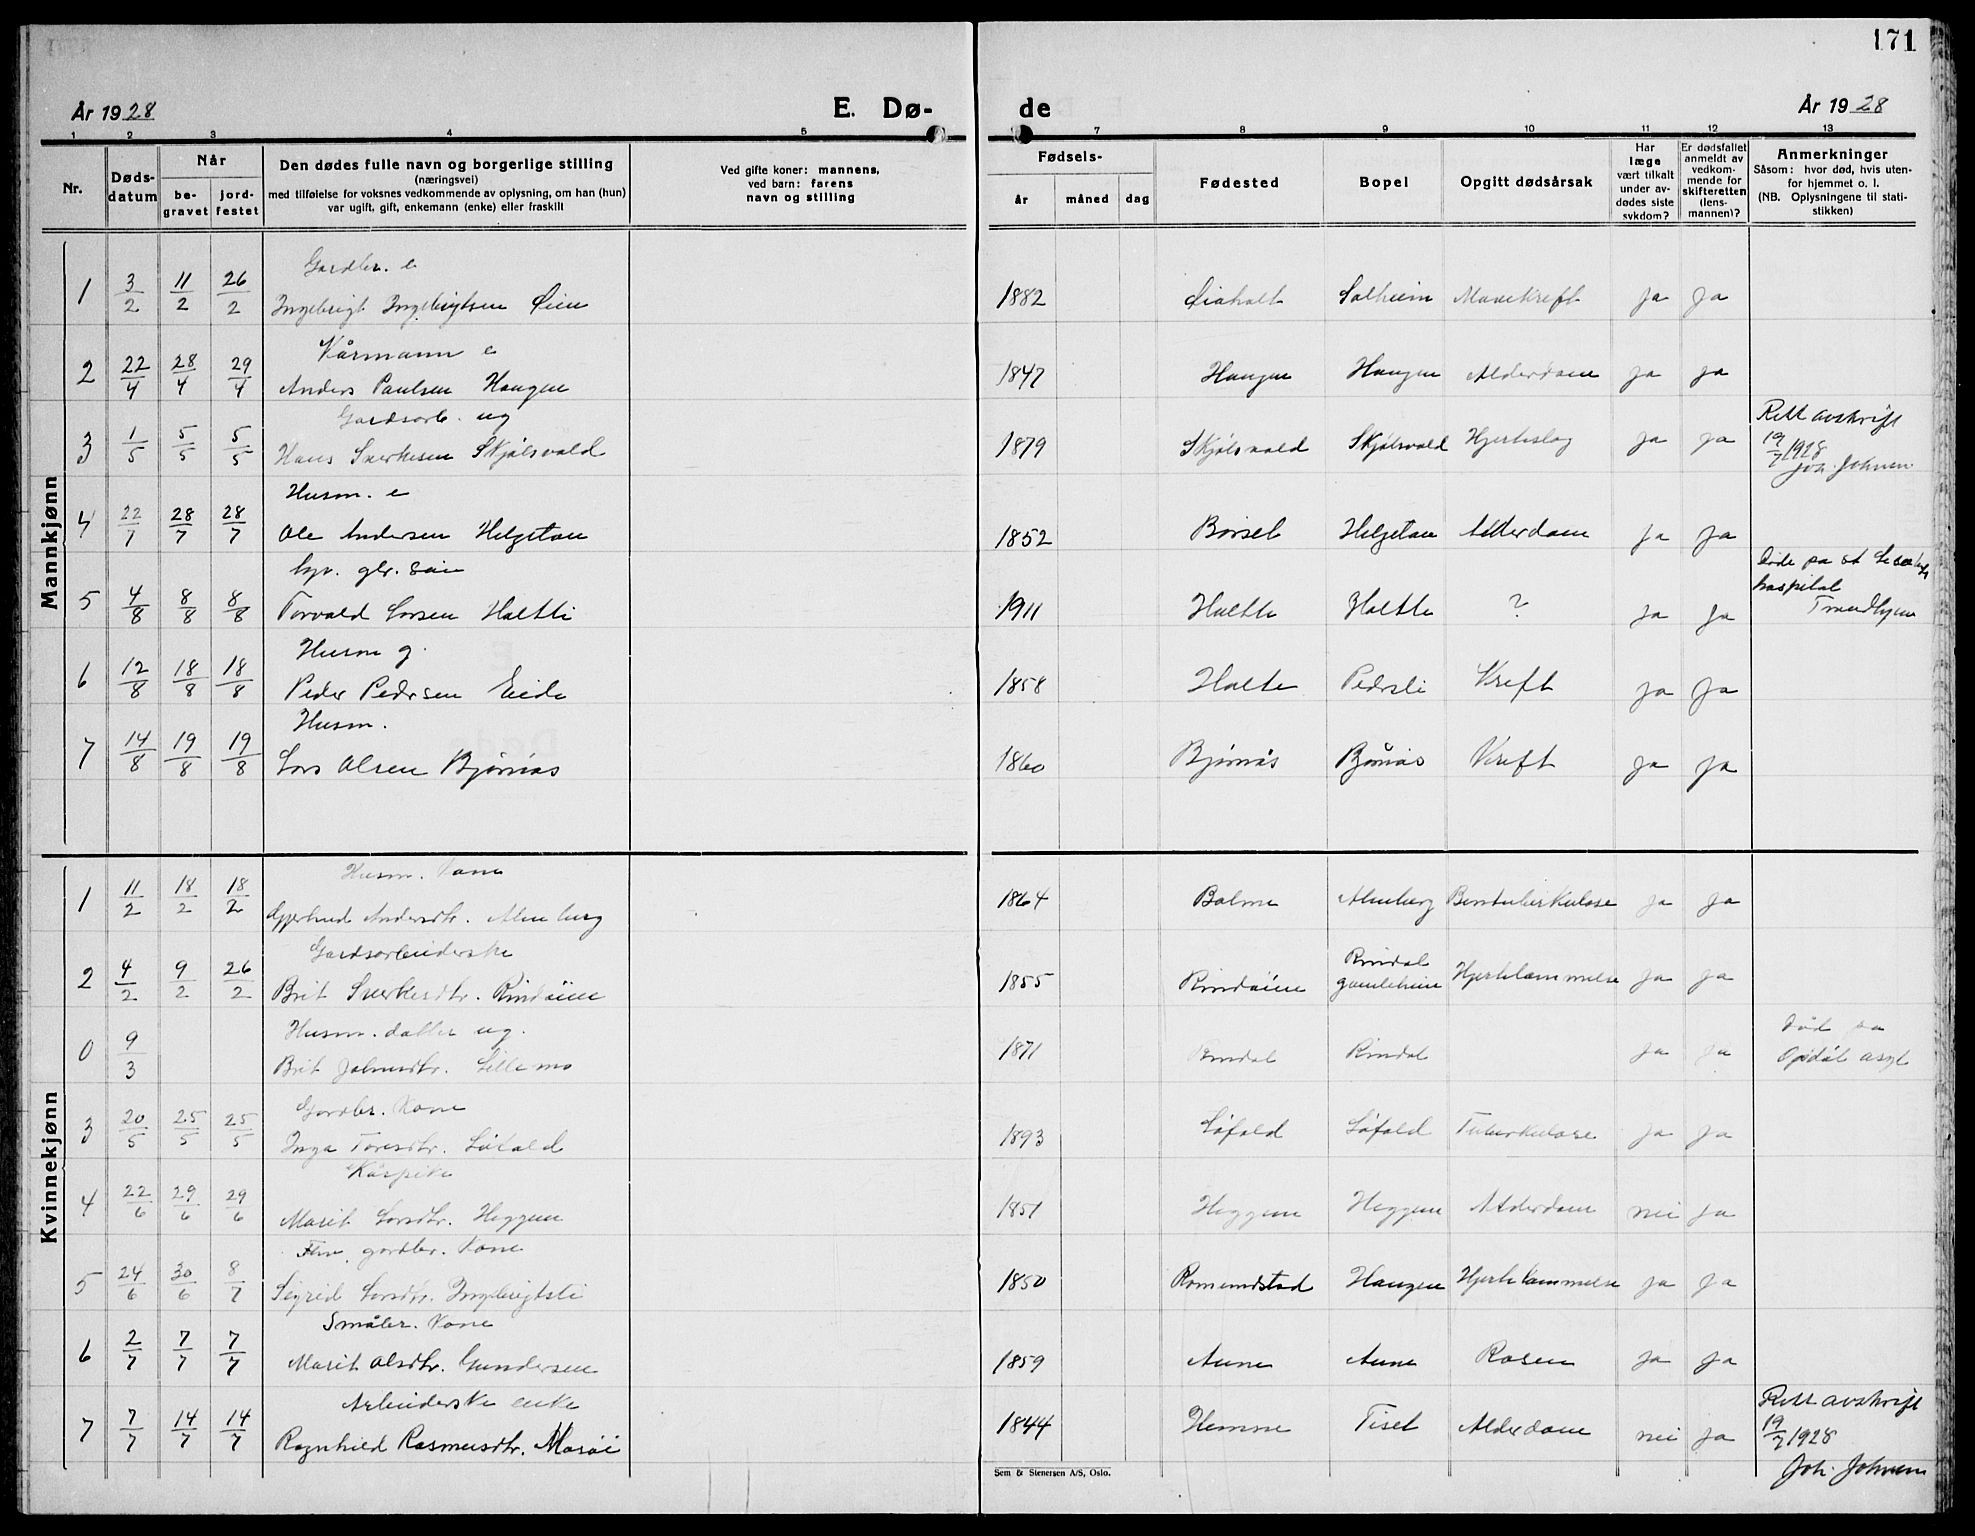 171
År 1928 E. Dø- de År 1928
1 2 3 4 5 7 8 9 10 11 12 13
Nr.
Døds-
datum
Når
be-
gravet
jord-
festet
Den dødes fulle navn og borgerlige stilling
(næringsvei)
med tilføielse for voksnes vedkommende av oplysning, om han (hun)
var ugift, gift, enkemann (enke) eller fraskilt
Ved gifte koner: mannens,
ved barn: farens
navn og stilling
Fødsels-
år måned dag
Fødested
Bopel
Opgitt dødsårsak
Har
læge
vært tilkalt
under av-
dødes siste
sykdom?
Er dødsfallet
anmeldt av
vedkom-
mende for
skifteretten
(lens-
mannen)?
Anmerkninger
Såsom: hvor død, hvis uten-
for hjemmet o. l.
(NB. Oplysningene til stati-
stikken)
Mannkjønn
Gardbr. e
1 3/2 11/2 26/2 Ingebrigt Ingebrigtsen Øien 1882 Solheim Mavekreft Ja Ja
Kårmann e
2 22/4 28/4 29/4 Anders Paulsen Haugen 1847 Haugen Haugen Alderdom Ja Ja
Gardsarb. ug
3 1/5 5/5 5/5 Hans Sverkesen Skjølsvold 1879 Skjølsvold Skjølsvold Hjerteslag Ja Ja
Rett avskrift
19/7 1928
Joh. Johnsen
Husm. e
4 22/7 28/7 28/7 Ole Andersen Helgetun 1852 Børset Helgetun Alderdom Ja Ja
gbr. søn
5 4/8 8/8 8/8 Torvald Larsen Holtli 1911 Holtli ? Ja Ja
Døde på St Lisabeth
hospital
Trondhjem
Husm g.
6 12/8 18/8 18/8 Peder Pedersen Eide 1858 Holte Pedersli Kreft Ja Ja
Husm.
7 14/8 19/8 19/8 Lars Olsen Bjørnås 1860 Bjørnås Bjørnås Kreft Ja Ja
Kvinnekjønn
Husm. Kone
1 11/2 18/2 18/2 Gjertrud Andersdtr. Almberg 1864 Bolme Almberg Bentuberkulose Ja Ja
Gardsarbeiderske
2 4/2 9/2 26/2 Brit Sverkesdtr. Rindøien 1855 Rindøien Rindal
gamlehim Hjertelammelse Ja Ja
Husm. datter ug.
0 9/3 Brit Johnsdtr. Lillemo 1871 Rindal Rindal Ja Ja
Død på
Opdøl asyl
Gardbr. Kone
3 20/5 25/5 25/5 Inga Toresdtr. Løfald 1893 Løfald Løfald Tuberkulose Ja Ja
Kårpike
4 22/6 29/6 29/6 Marit Larsdtr. Heggem 1851 Heggem Heggem Alderdom nei Ja
Fhv gardbr. Kone
5 24/6 30/6 8/7 Sigrid Larsdtr. Ingebrigtsli 1850 Romundstad Haugen Hjertelammelse Ja Ja
Småbr. Kone
6 2/7 7/7 7/7 Marit Olsdtr. Gundersen 1859 Aune Aune Rosen Ja Ja
Arbeiderske enke
7 7/7 14/7 14/7 Ragnhild Rasmusdtr. Morøi 1844 Hemne Tiset Alderdom nei Ja
Rett avskrift
19/7 1928
Joh. Johnsen
Sem & Stenersen A/S, Oslo.